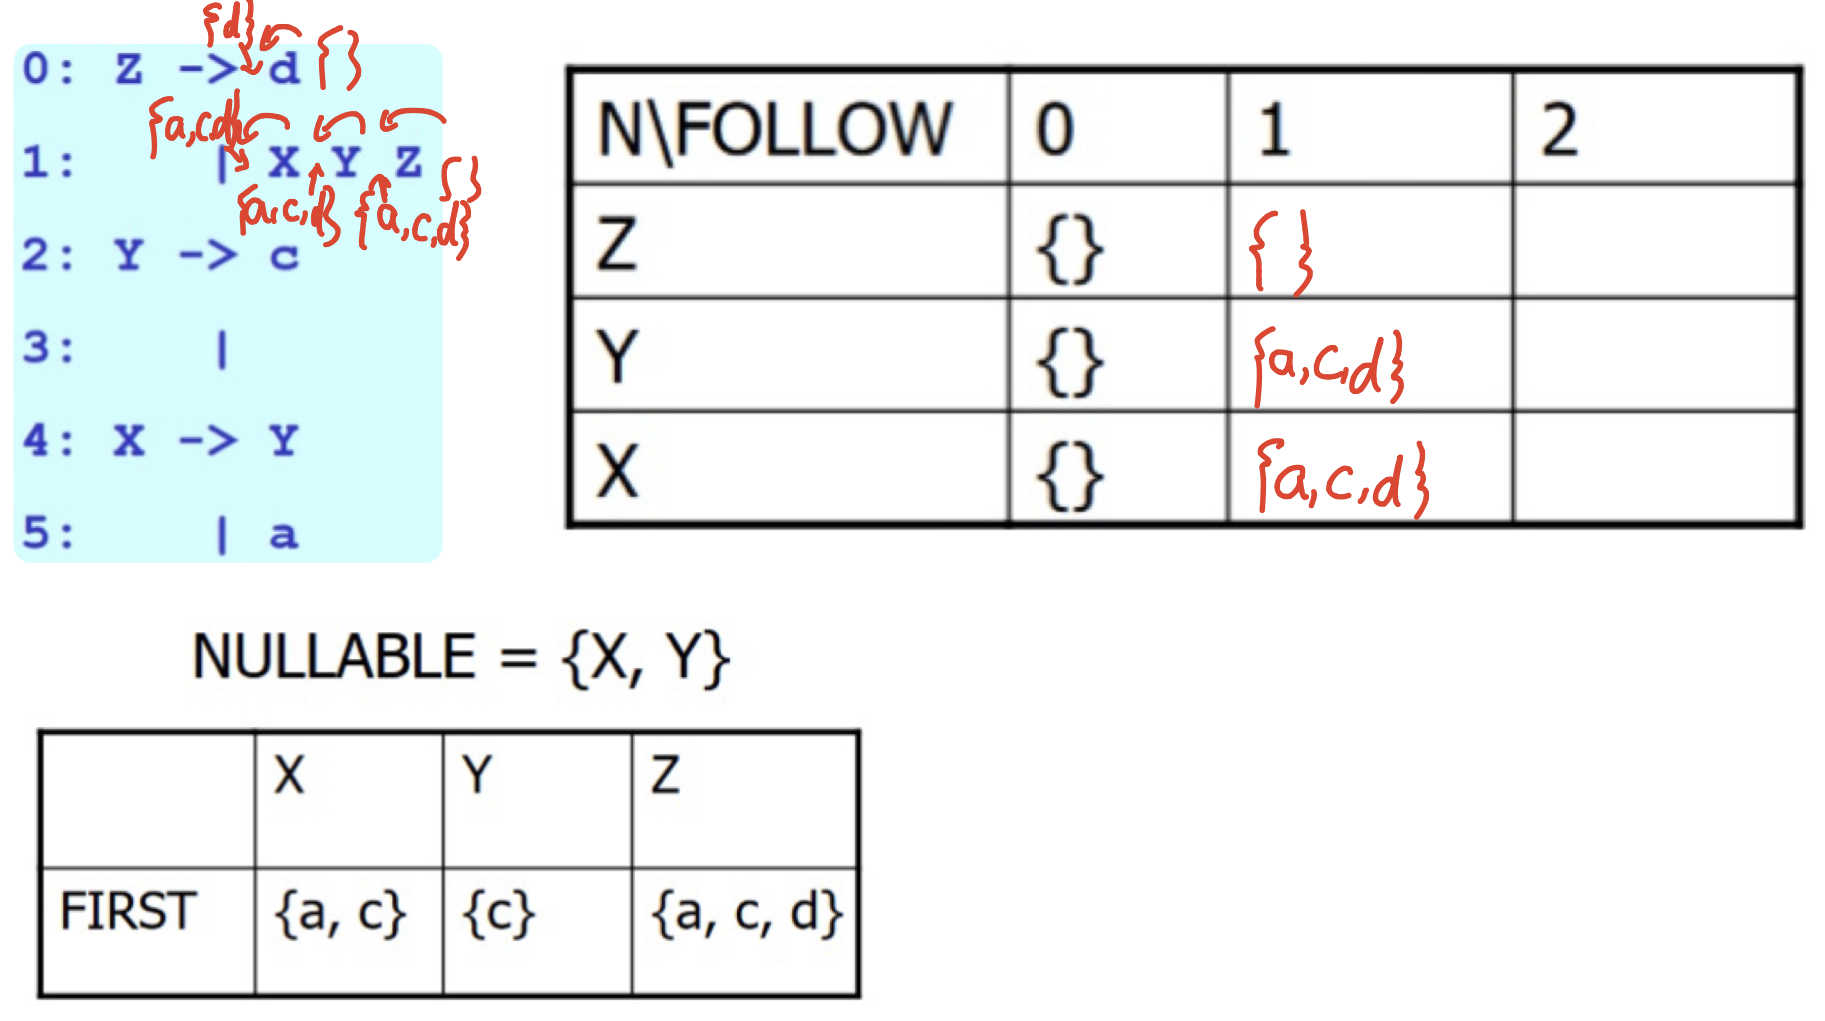 {d}
0: Z -> d { }
{a,c,d}
1: | X Y Z { }
{a,c,d} {a,c,d}
2: Y -> c
3: |
4: X -> Y
5: | a
N\FOLLOW 0 1 2
Z {} { }
Y {} {a,c,d}
X {} {a,c,d}
NULLABLE = {X, Y}
X Y Z
FIRST {a, c} {c} {a, c, d}